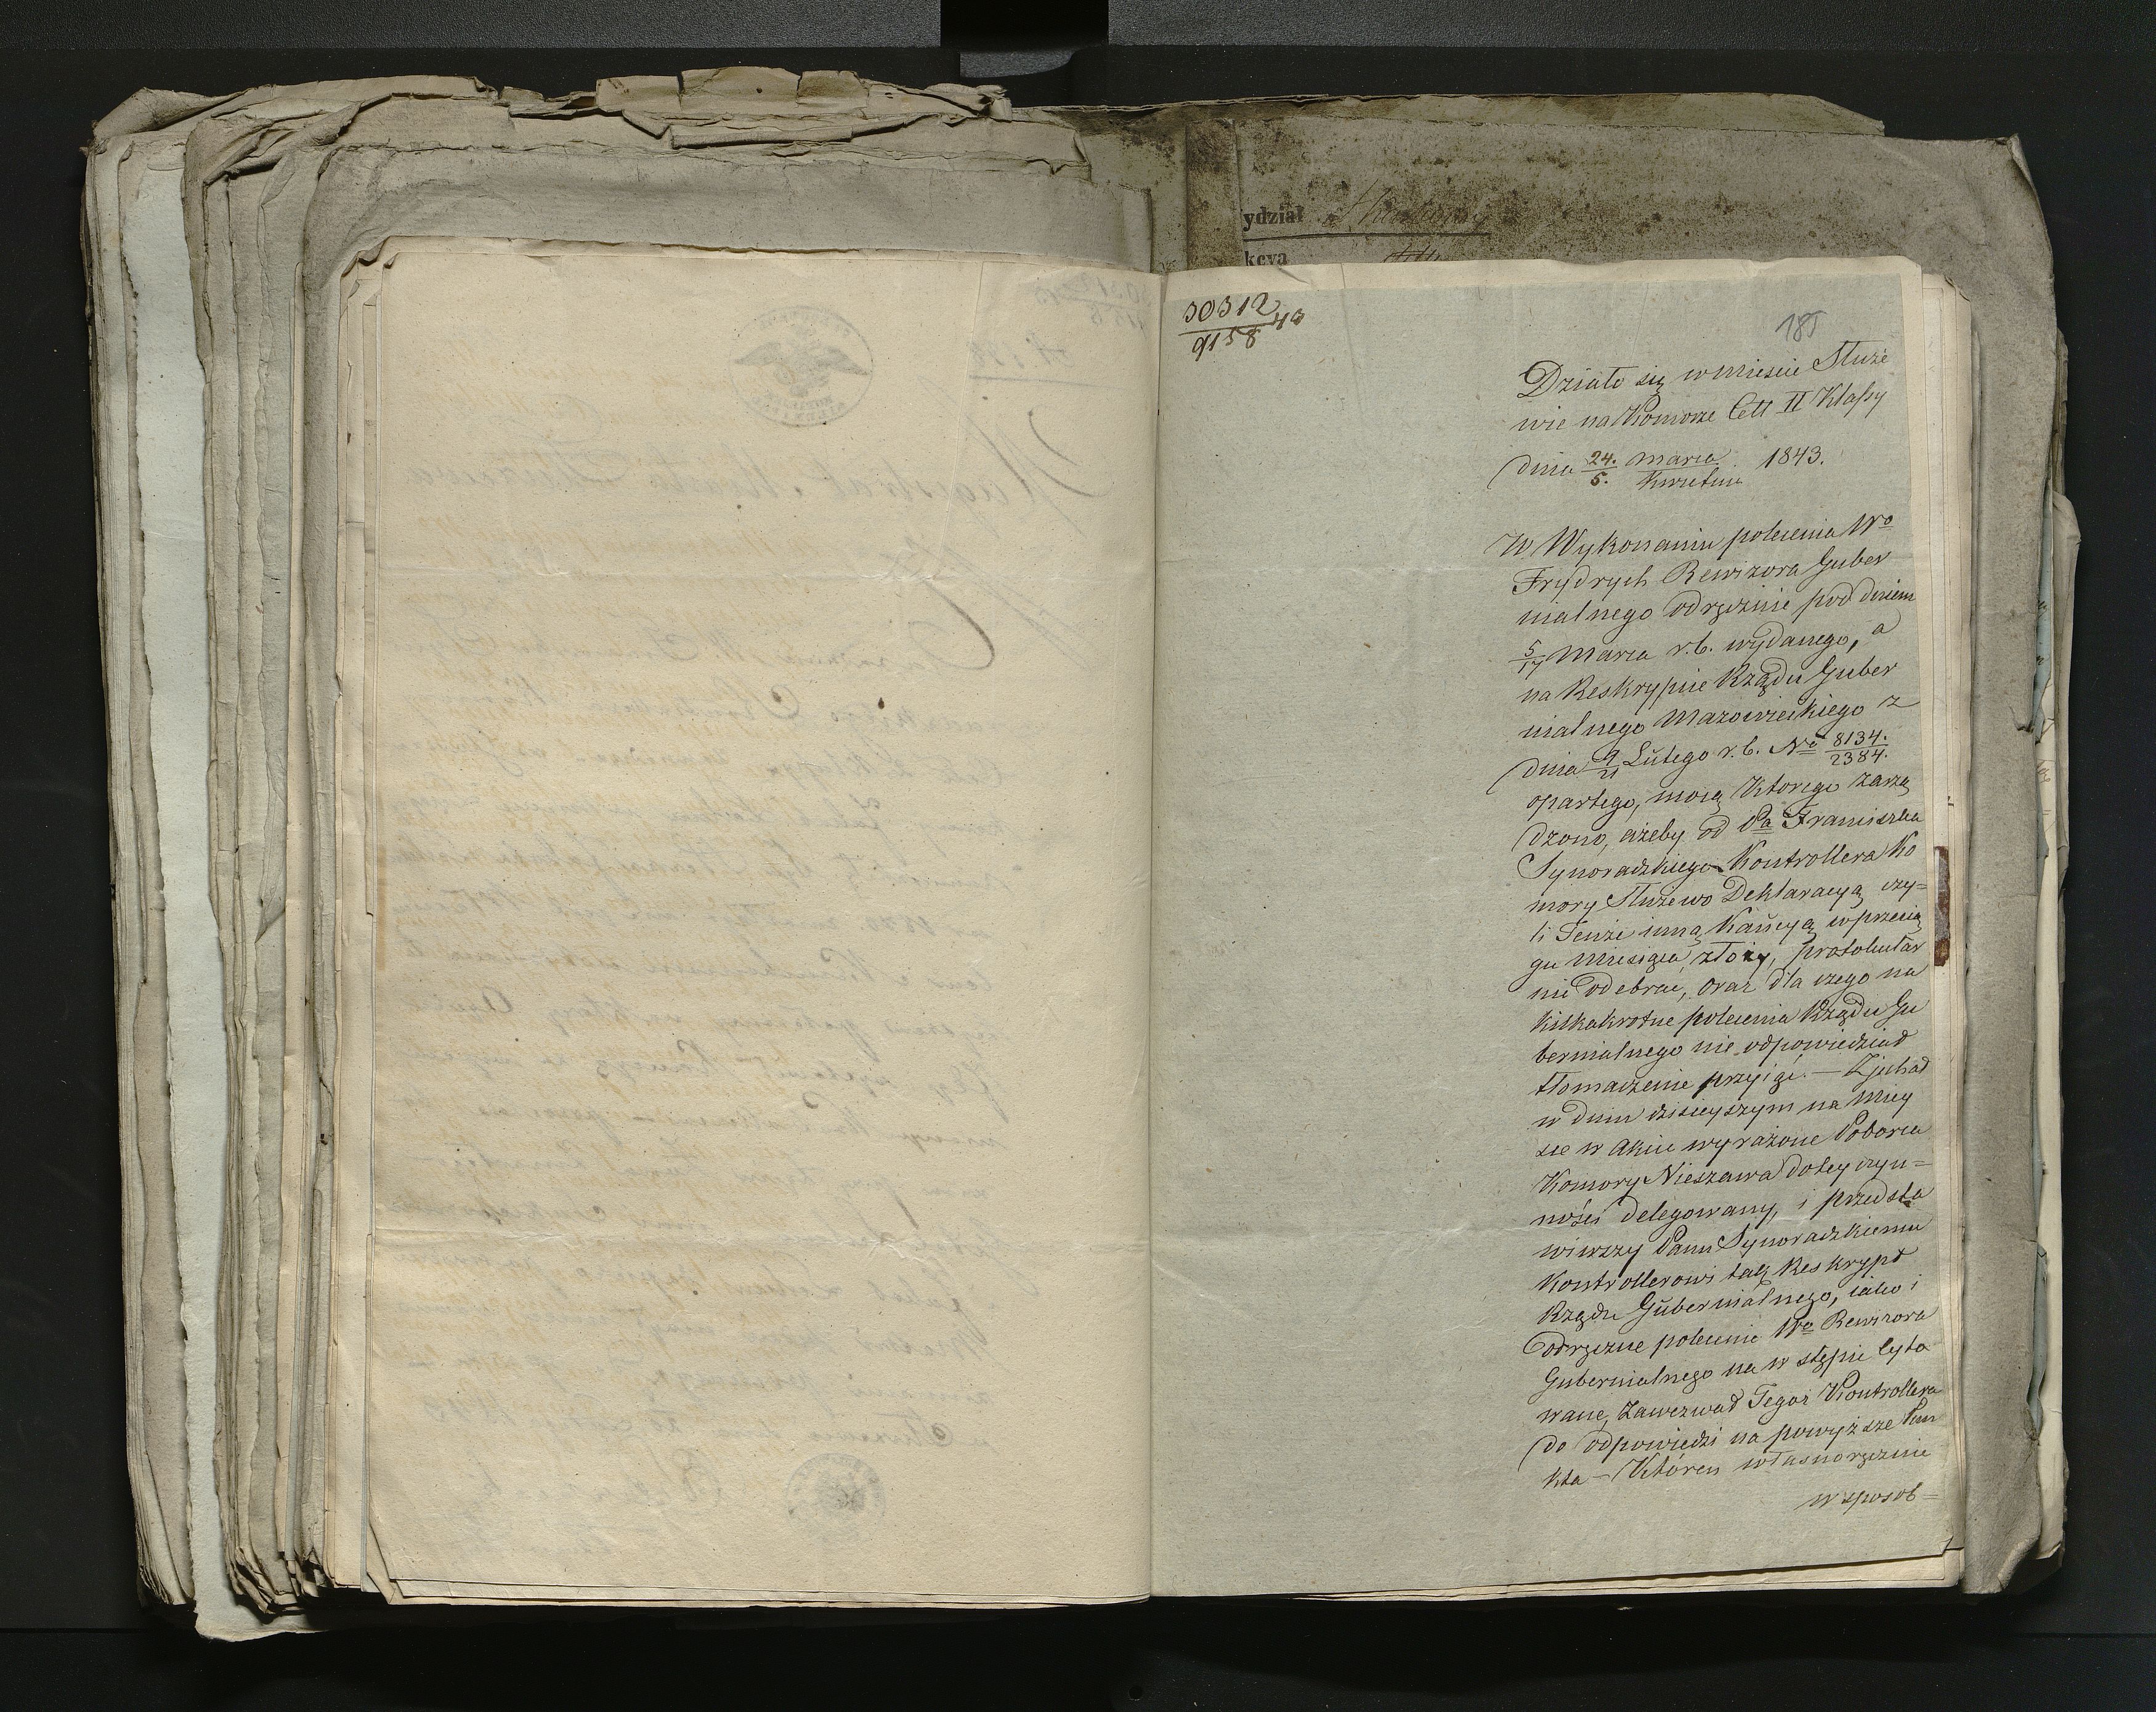 ydział
kcya
30312
9158 43
185
Działo się w mieście Służe
wie na Komorze Cell II Klassy
dnia 24./5. Marca/Kwietnia 1843.
W Wykonaniu polecenia Wo
Frydrych Rewizora Guber
nialnego odręcznie pod dniem
5/17 Marca r.b. wydanego, a
na Reskrypcie Rządu Guber
nialnego Mazowieckiego z
dnia 9/21 Lutego r.b. No 8134./2384.
opartego, mocą którego zarzą
dzono, ażeby od Pa Franciszka
Synoradzkiego Kontrollera Ko
mory Służewo Deklaracyą czy=
li Tenże inną Kaucyą w przecią
gu miesiąca złoży, protokular
nie odebrać, oraz dla czego na
kilkakrotne polecenia Rządu Gu
bernialnego nie odpowiedział
tłomaczenie przyjąć. — Zjechał
w dniu dzisieyszym na miey
sce w akcie wyrażone Poborca
Komory Nieszawa do tey czyn=
ności delegowany, i przedsta
wiwszy Panu Synoradzkiemu
Kontrollerowi tak Reskrypt
Rządu Gubernialnego, iako i
odręczne polecenie Wo Rewizora
Gubernialnego na w stępie cyto
wane, Zawezwał Tegoż Kontrollera
do odpowiedzi na powyższe Pun
kta — Któren własnoręcznie
w sposob=